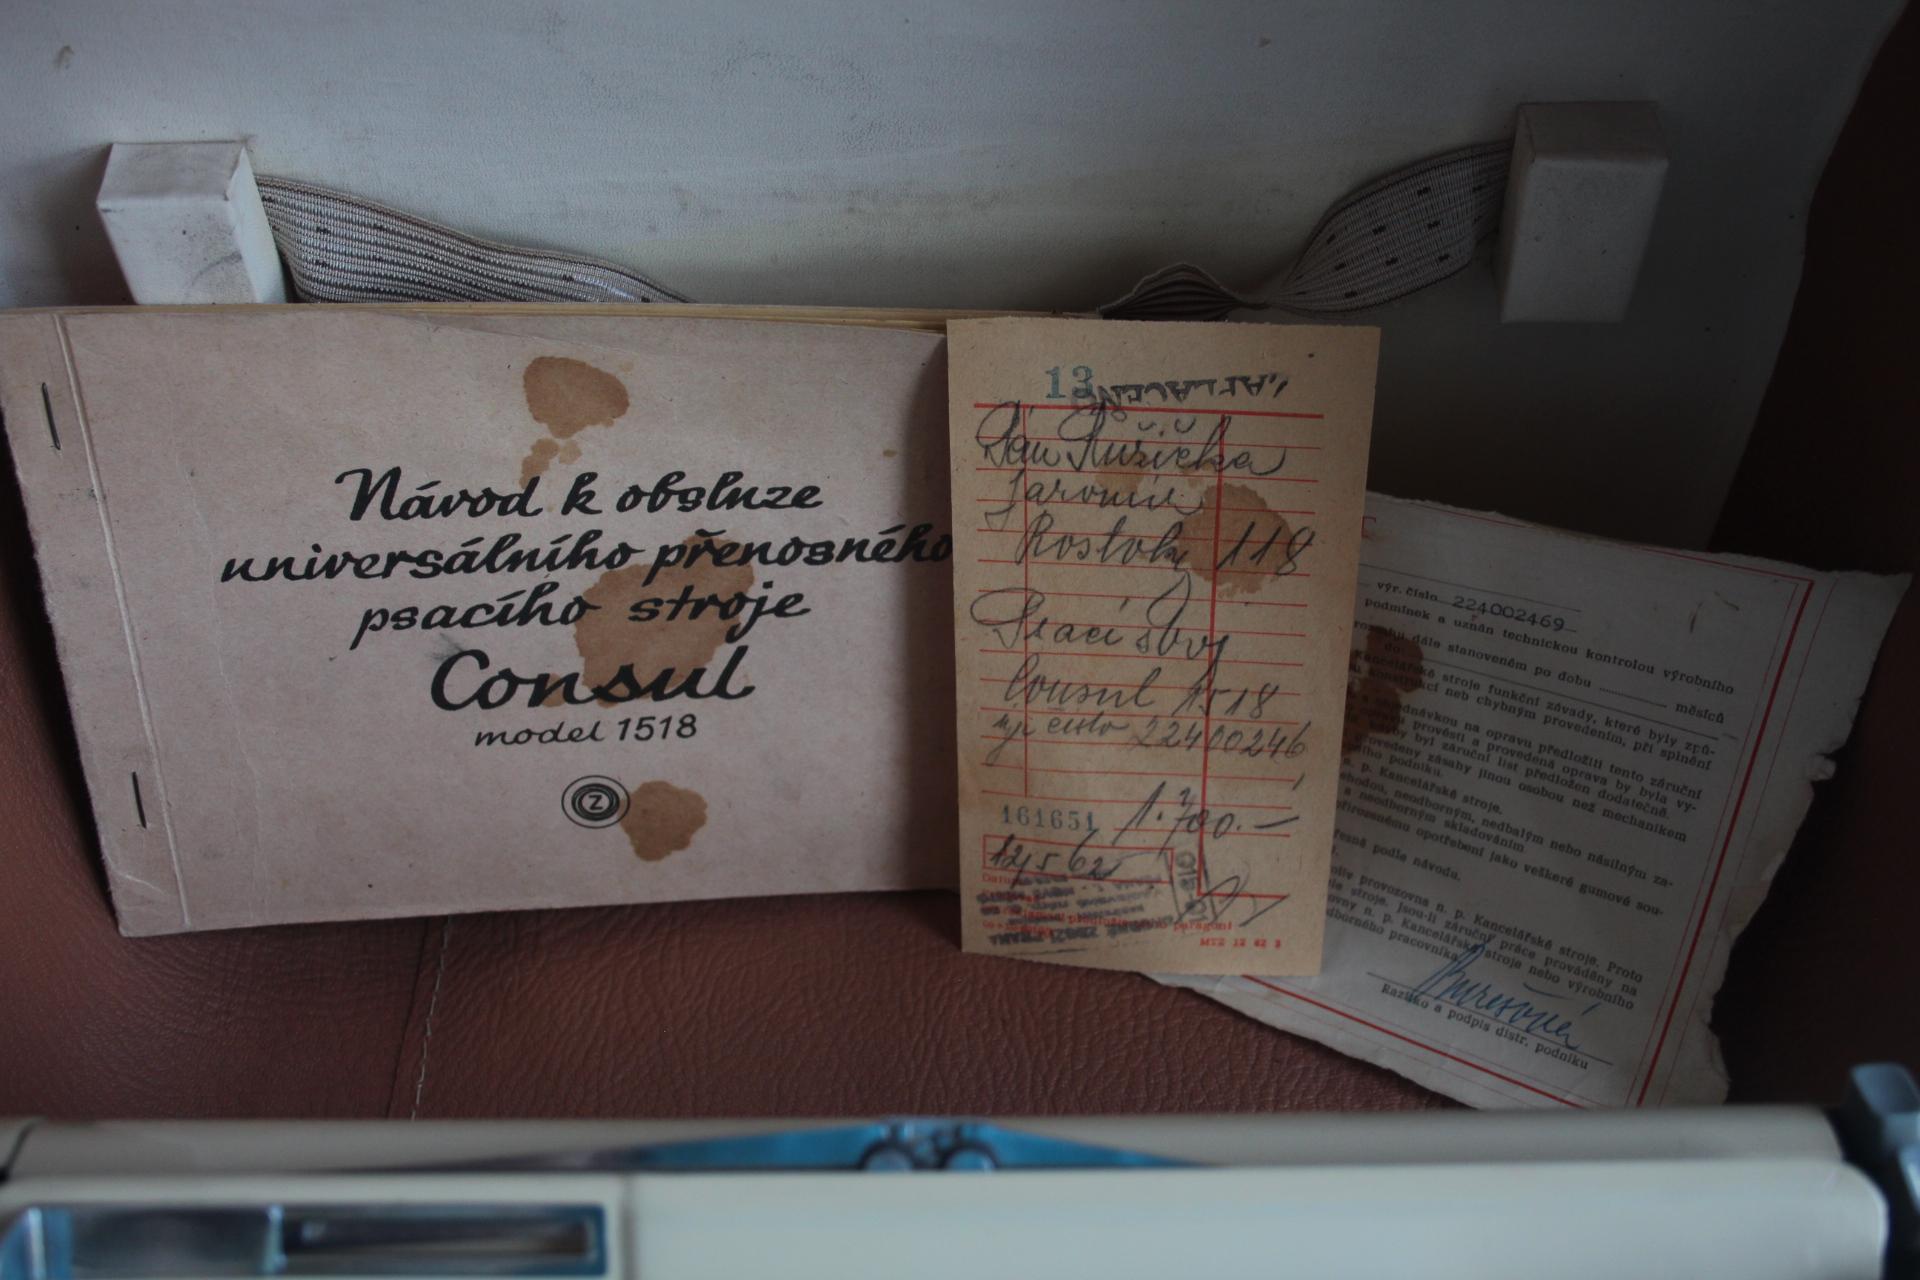 Návod k obsluze
universálního přenosného
psacího stroje
Consul
model 1518
Z
13
ZAPLACENO
Pan Růžička
Jaromír
Roztoky 118
Psací stroj
Consul 1518
výr. číslo 22400246
1.700.-
161651
12/5 62
předložte paragon
MTZ 12 62 3
výr. číslo 224002469
podmínek a uznán technickou kontrolou výrobního
dále stanoveném po dobu ........ měsíců
do:
Kancelářské stroje funkční závady, které byly způ-
konstrukcí neb chybným provedením, při splnění
s objednávkou na opravu předložiti tento záruční
opravu provésti a provedená oprava by byla vy-
by byl záruční list předložen dodatečně.
provedeny zásahy jinou osobou než mechanikem
podniku.
n. p. Kancelářské stroje.
nehodou, neodborným, nedbalým nebo násilným za-
a neodborným skladováním
přirozenému opotřebení jako veškeré gumové sou-
podle návodu.
provozovna n. p. Kancelářské stroje. Proto
stroje. Jsou-li záruční práce prováděny na
n. p. Kancelářské stroje nebo výrobního
odborného pracovníka.
Razítko a podpis distr. podniku